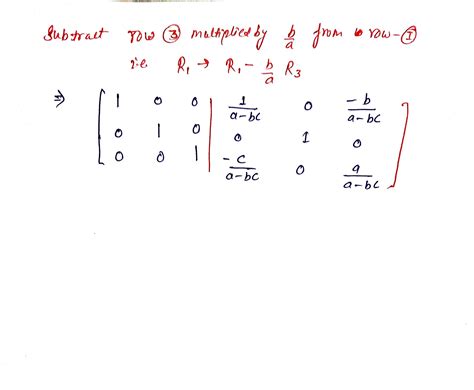 Subtract row ③ multiplied by b/a from row-①
i.e. R₁ → R₁ - b/a R₃
⇒ [ 1 0 0 | 1/(a-bc) 0 -b/(a-bc) ]
0 1 0 | 0 1 0
0 0 1 | -c/(a-bc) 0 a/(a-bc)